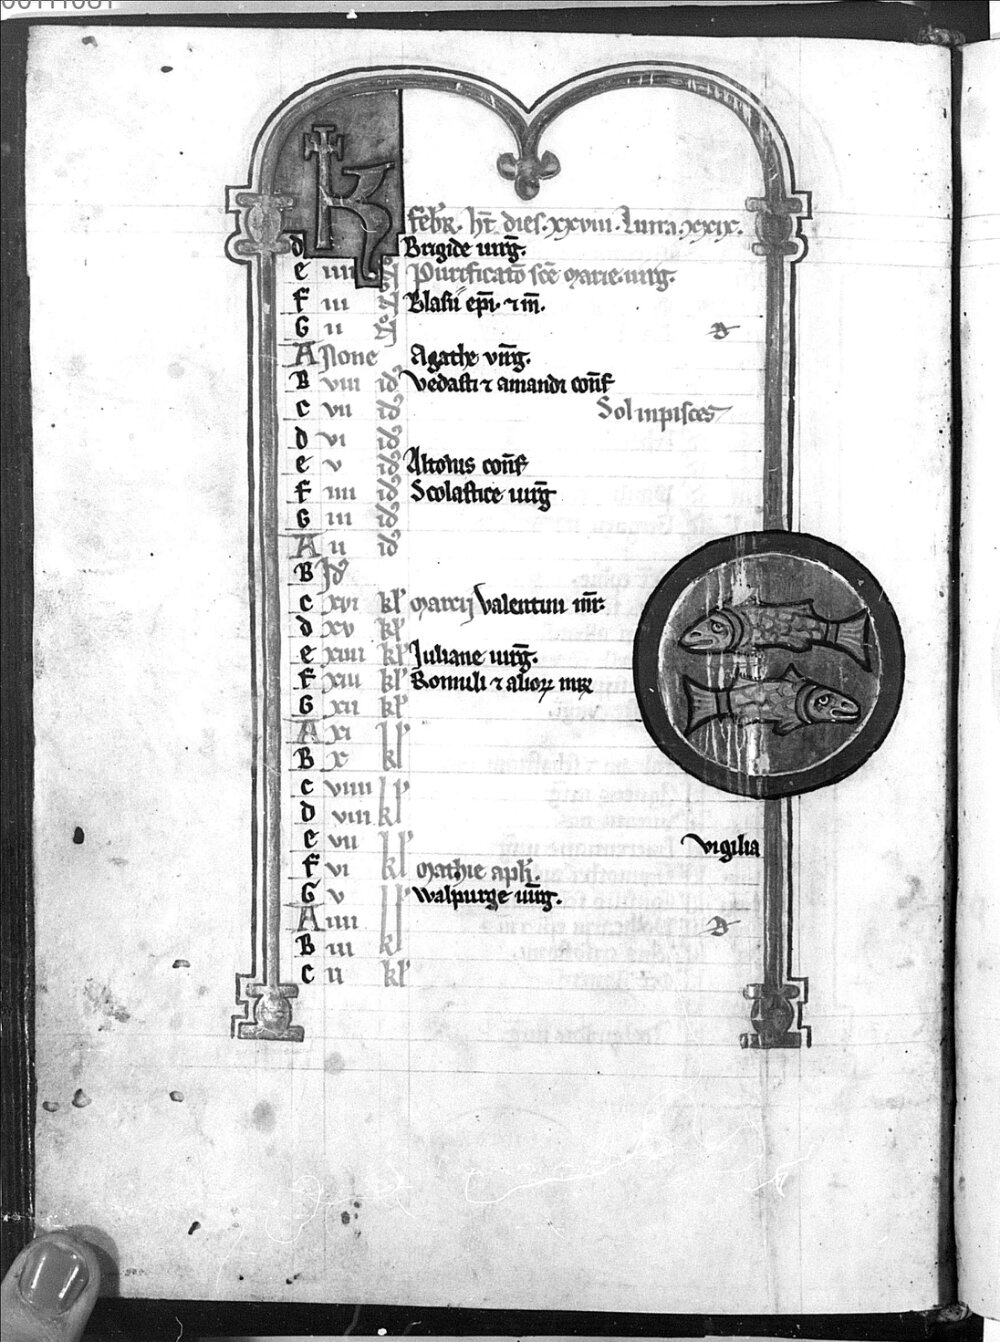 KL
Febr̃. hт̃ dies. xxviii. Luna. xxix.
d Brigide uirg̃.
e iiii Purificatõ sc̃e marie. uirg.
f iii Blasii ep̃i. ⁊ m̃.
G ii D
A None Agathe virg̃.
B viii id' Vedasti ⁊ amandi conf̃
c vii id' Sol in pisces
d vi id'
e v id' Altonis conf̃
f iiii id' Scolastice uirg̃
G iii id'
A ii id'
B Id'
c xvi kl' marcij Valentini m̃r.
d xv kl'
e xiiii kl' Juliane uirg̃.
f xiii kl' Romuli ⁊ alioꝝ mr̃
G xii kl'
A xi kl'
B x kl
c viiii kl'
d viii kl
e vii kl' Vigilia
f vi kl mathie apl̃i.
G v kl' Walpurge uirg̃.
A iiii kl D
B iii kl
c ii kl'